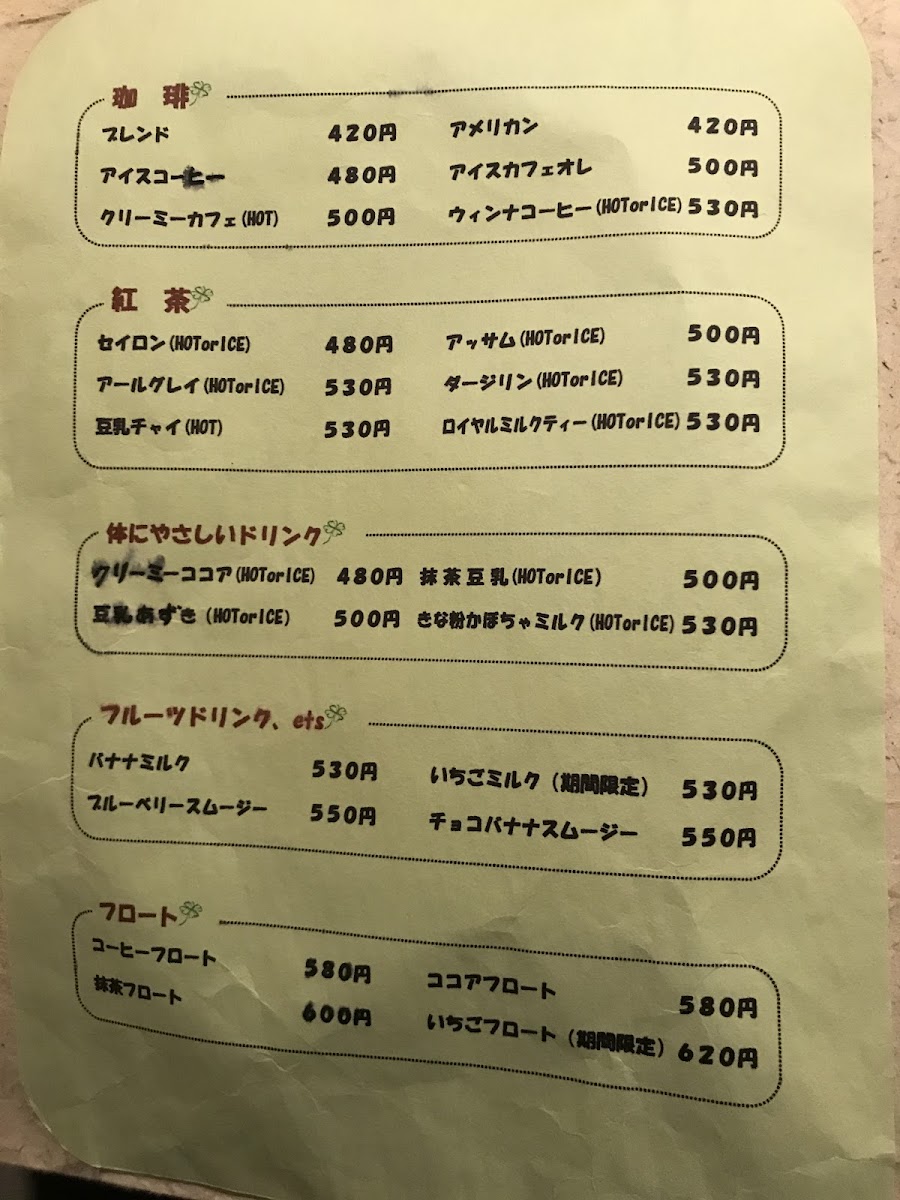 珈 琲
ブレンド 420円 アメリカン 420円
アイスコーヒー 480円 アイスカフェオレ 500円
クリーミーカフェ(HOT) 500円 ウィンナコーヒー(HOTorICE) 530円
紅 茶
セイロン(HOTorICE) 480円 アッサム(HOTorICE) 500円
アールグレイ(HOTorICE) 530円 ダージリン(HOTorICE) 530円
豆乳チャイ(HOT) 530円 ロイヤルミルクティー(HOTorICE) 530円
体にやさしいドリンク
クリーミーココア(HOTorICE) 480円 抹茶豆乳(HOTorICE) 500円
豆乳あずき(HOTorICE) 500円 きな粉かぼちゃミルク(HOTorICE) 530円
フルーツドリンク、ets
バナナミルク 530円 いちごミルク(期間限定) 530円
ブルーベリースムージー 550円 チョコバナナスムージー 550円
フロート
コーヒーフロート 580円 ココアフロート 580円
抹茶フロート 600円 いちごフロート(期間限定) 620円